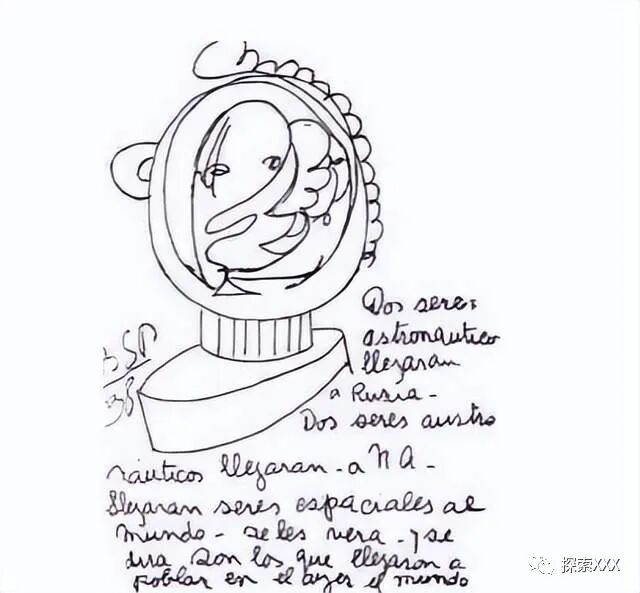 Dos seres
astronautico
llegaran
a Rusia -
Dos seres austro
náuticos llegaran - a N A -
llegaran seres espaciales al
mundo - se les vera - y se
dira son los que llegaron a
poblar en el ayer el mundo
BSP
38
探索XXX